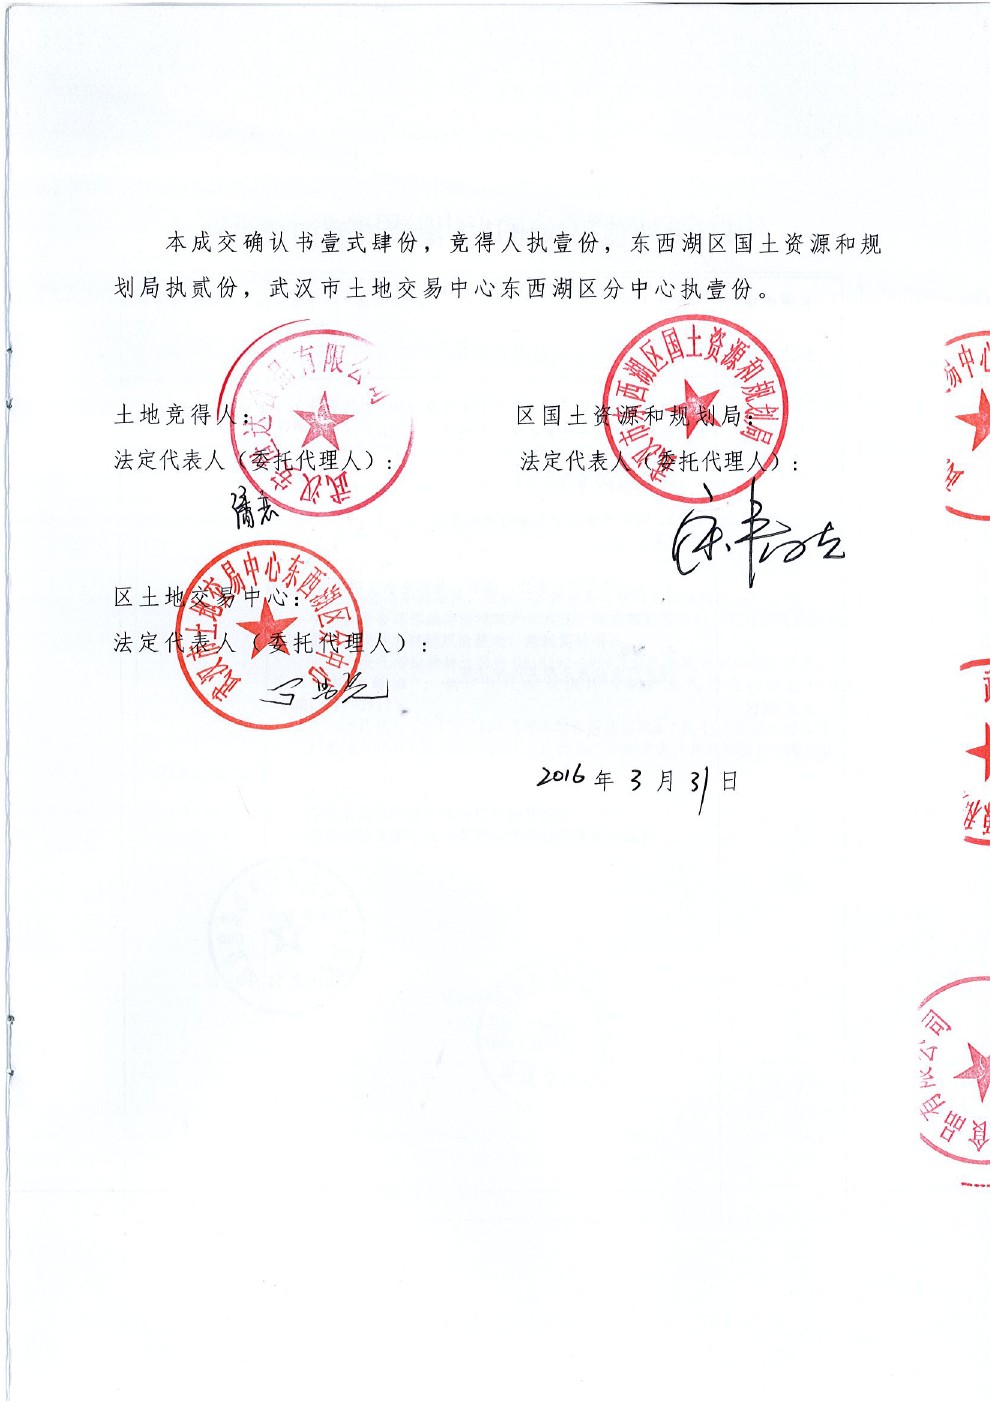 本成交确认书壹式肆份，竞得人执壹份，东西湖区国土资源和规
划局执贰份，武汉市土地交易中心东西湖区分中心执壹份。
土地竞得人：
区国土资源和规划局：
法定代表人（委托代理人）：
法定代表人（委托代理人）：
武汉市东西湖区国土资源和规划局
区土地交易中心：
法定代表人（委托代理人）：
武汉市土地交易中心东西湖区分中心
2016年3月31日
易中心
食品有限公司